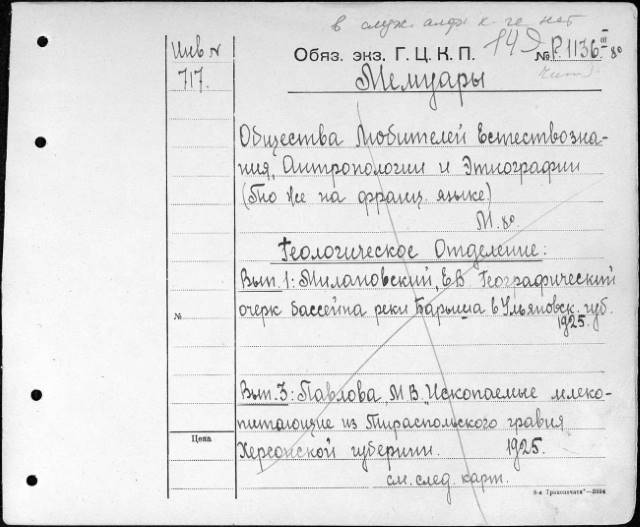 в служ. алф. к-ге нет
Инв N
717.
Обяз. экз. Г. Ц. К. П.
149
№ Р.1136 III 8°
Мемуары
Общества Любителей Естествозна-
ния, Антропологии и Этнографии
(То же на франц. языке)
М. 8°
Геологическое Отделение:
Вып. 1: Милановский, Е.В. Географический
очерк бассейна реки Барыша в Ульяновск. губ.
1925.
№
Вып. 3: Павлова, М.В. Ископаемые млеко-
питающие из Тираспольского гравия
Херсонской губернии. 1925.
Цена
см. след. карт.